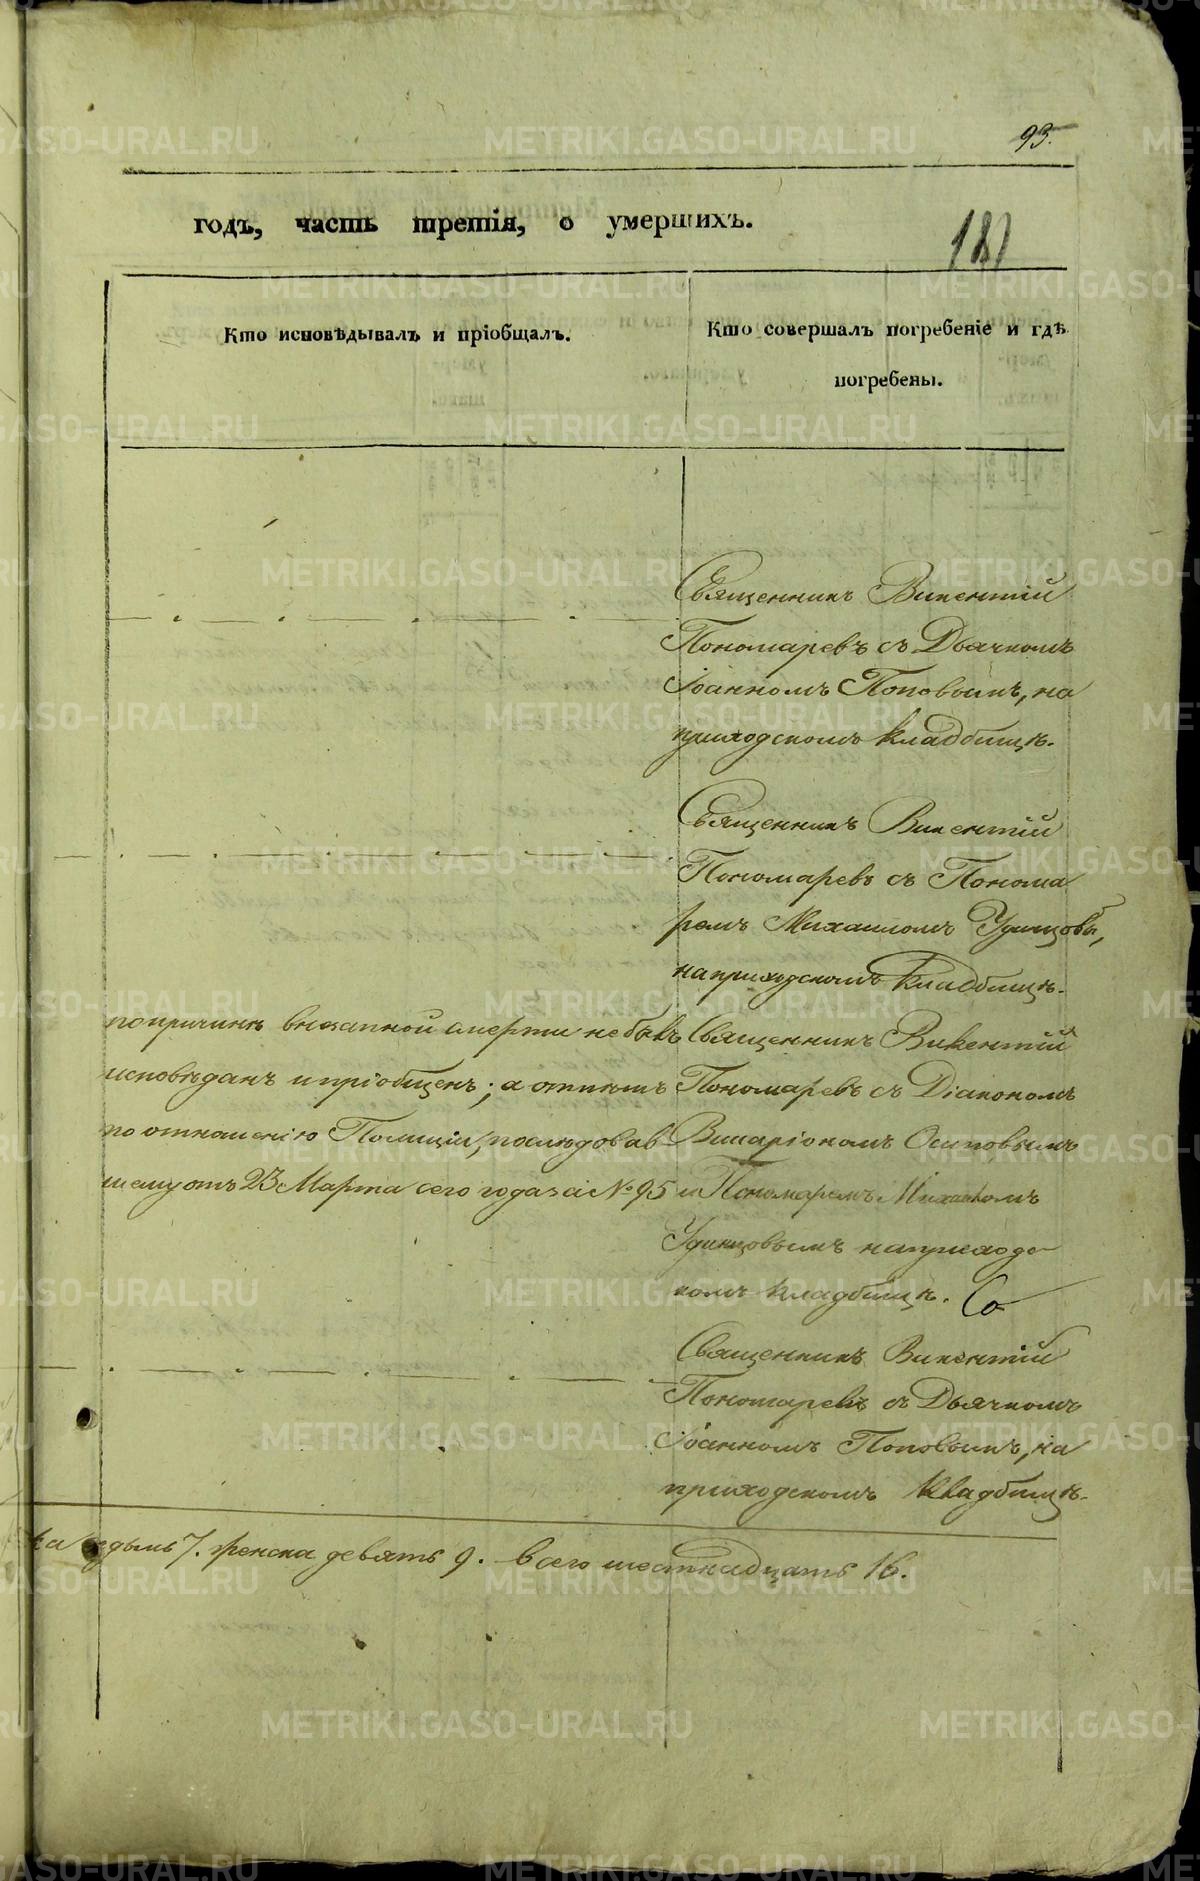 93.
годъ, часть третія, о умершихъ.
181
Кто исповѣдывалъ и пріобщалъ.
Кто совершалъ погребеніе и гдѣ
погребены.
Священникъ Викентій
Пономаревъ съ Дьячкомъ
Іоанномъ Поповымъ, на
приходскомъ кладбищѣ.
Священникъ Викентій
Пономаревъ съ Понома
ремъ Михаиломъ Удинцовы,
на приходскомъ кладбищѣ.
по причинѣ внезапной смерти не бывъ
исповѣданъ и пріобщенъ; а отпѣтъ
по отношенію Полиціи, послѣдовав
шему отъ 23 Марта сего года за № 95
Священникъ Викентій
Пономаревъ съ Діакономъ
Осиповымъ
и Пономаремъ Михаиломъ
Удинцовымъ на приходс
комъ кладбищѣ.
Священникъ Викентій
Пономаревъ съ Дьячкомъ
Іоанномъ Поповымъ, на
приходскомъ кладбищѣ.
7. женска девять 9. Всего шестнадцать 16.
METRIKI.GASO-URAL.RU